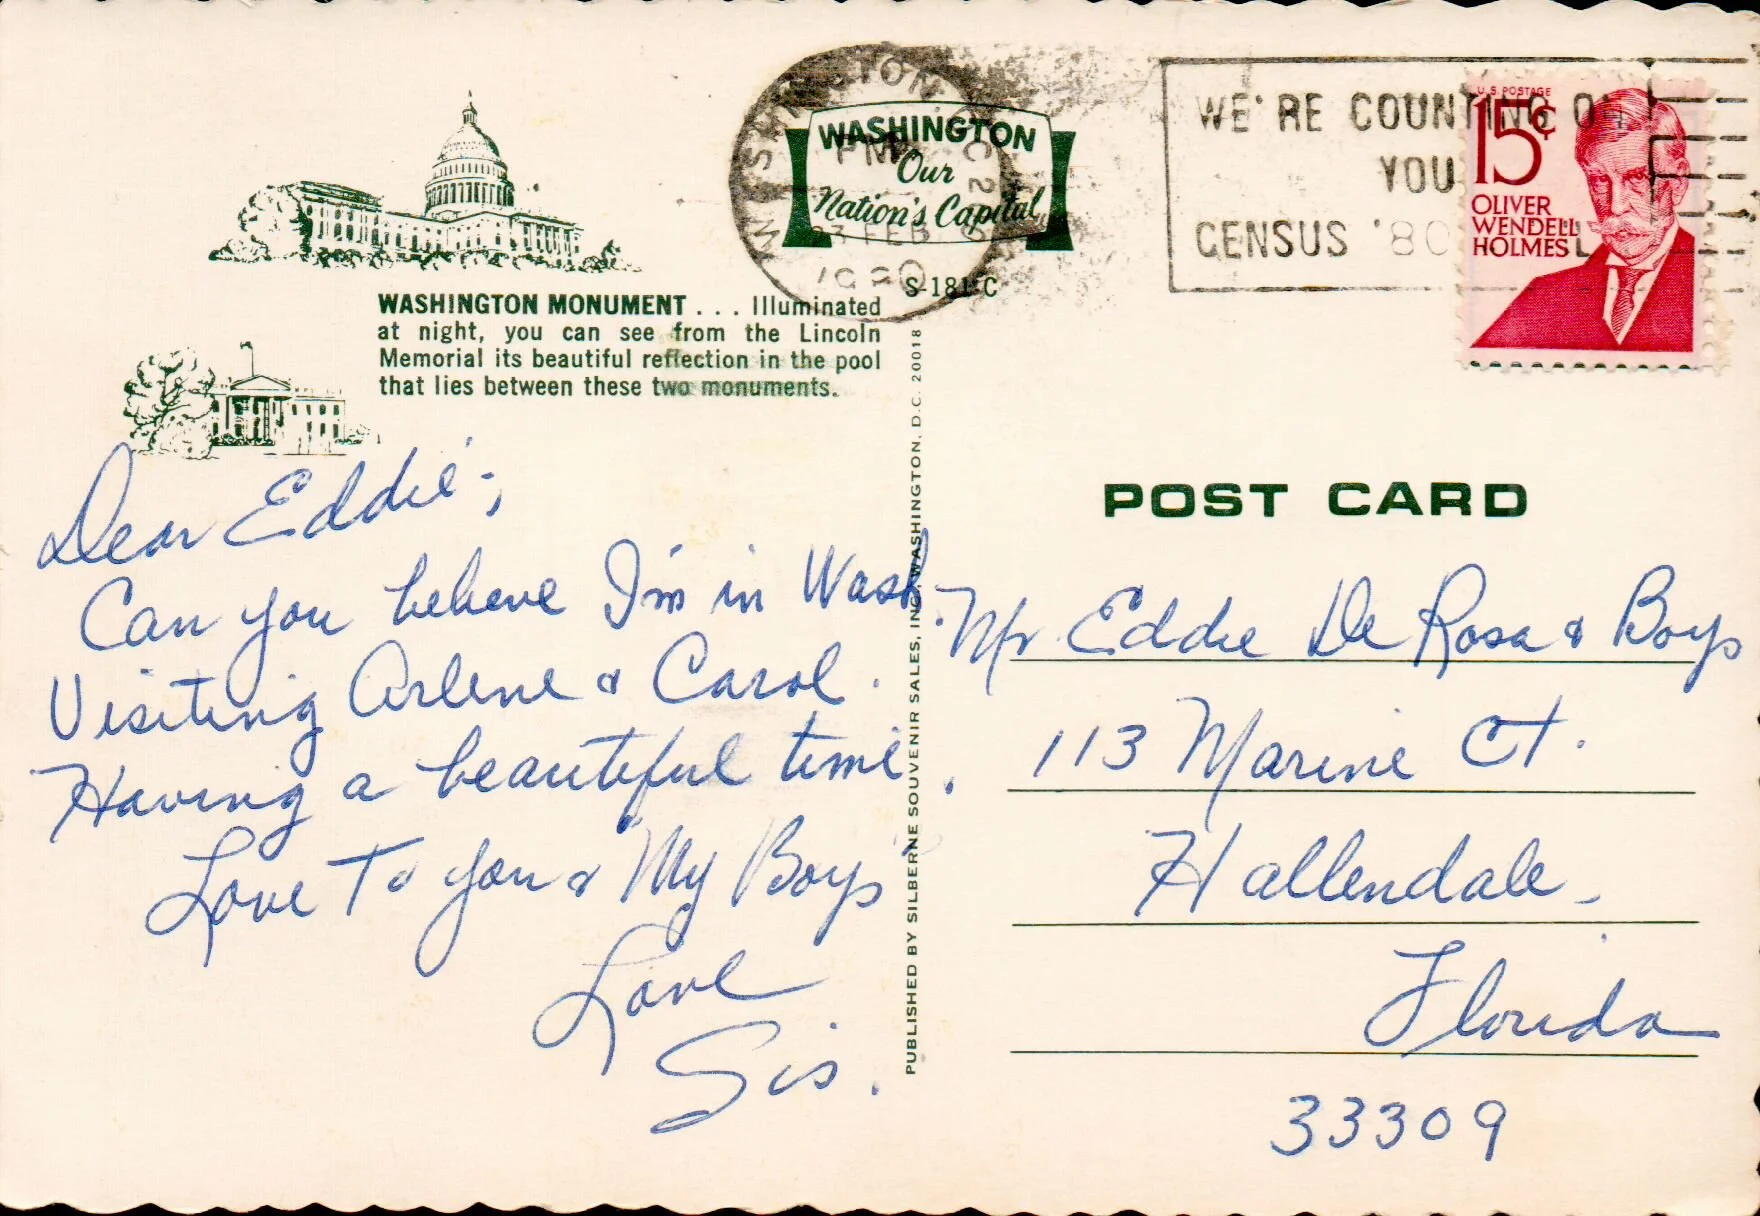 WASHINGTON
Our
Nation's Capital
S-181-C
WASHINGTON D C 2
PM
23 FEB
1980
WE'RE COUNTING ON
YOU
CENSUS '80
U.S. POSTAGE
15¢
OLIVER
WENDELL
HOLMES
WASHINGTON MONUMENT . . . Illuminated
at night, you can see from the Lincoln
Memorial its beautiful reflection in the pool
that lies between these two monuments.
Dear Eddie-,
Can you believe I'm in Wash.
Visiting Arlene & Carol.
Having a beautiful time.
Love To you & My Boys
Love
Sis.
PUBLISHED BY SILBERNE SOUVENIR SALES, INC., WASHINGTON, D.C. 20018
POST CARD
Mr Eddie De Rosa & Boys
113 Marine Ct.
Hallendale-
Florida
33309